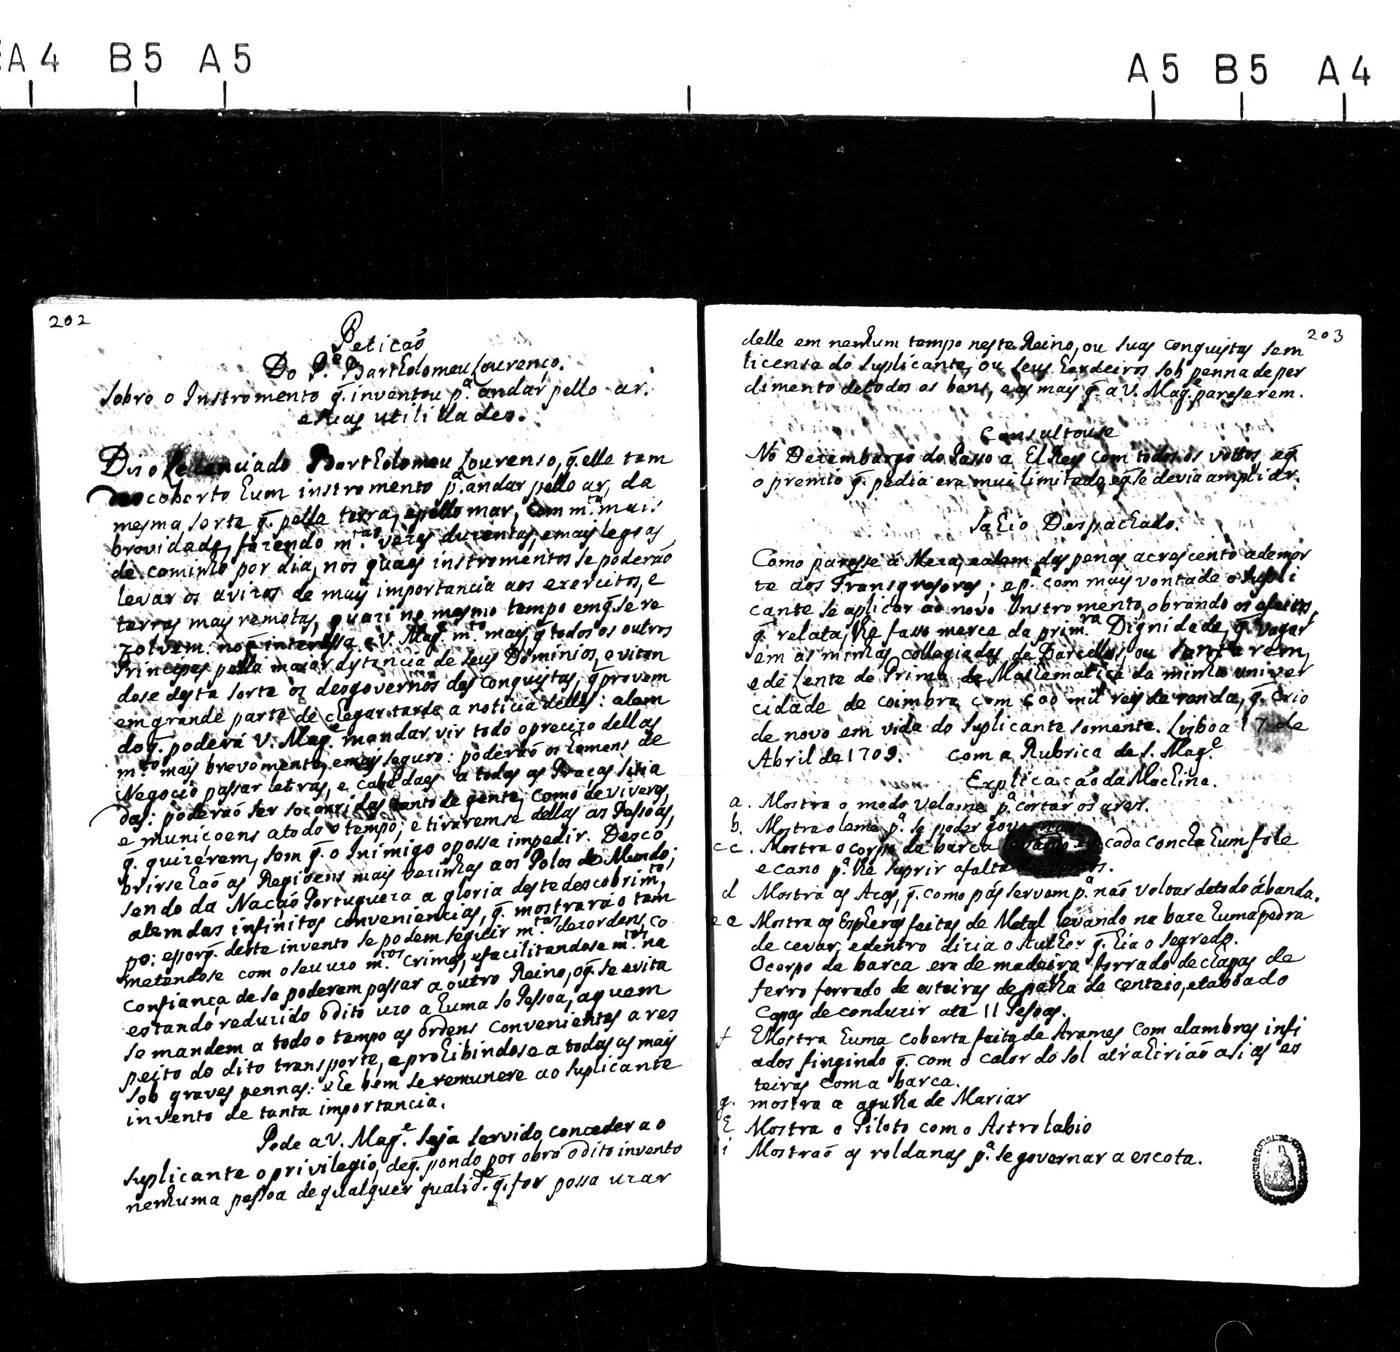 A4 B5 A5
A5 B5 A4
202
Peticaõ
Do P.e Bartholomeu Lourenco.
sobre o Instromento q̃. inventou p.a andar pello ar.
e suas utilidades.
Diz o Lecenciado Bartholomeu Lourenso, q̃. elle tem
descoberto hum instromento p.a andar pello ar, da
mesma sorte q̃. pella terra, e pello mar, com m.ta mais
brevidade, fazendo m.tas vezes duzentas, e mais legoas
de caminho por dia, nos quaes instromentos se poderáo
levar os avizos de mais importancia aos exercitos, e
terras mais remotas, quazi no mesmo tempo em q̃. se re
zolvem: no q̃ interessa a V. Mag.e m.to mais q̃ todos os outros
Principes pella maior distancia de seus Dominios, evitan
dose desta sorte os desgovernos das conquistas, q̃. provem
em grande parte de chegar tarde a noticia delles: alem
do q̃. poderá V. Mag.e mandar vir todo o precizo dellas
m.to mais brevemente, e mais seguro: poderaõ os homens de
Negocio passar letras, e cabedaes a todas as Pracas sitia
das: poderaõ ser socorridas tanto de gente, como de viveres,
e municoens a todo o tempo; e tiraremse dellas as Pessoas,
q̃. quizerem, sem q̃. o Inimigo o possa impedir. Desco
brirsehaõ as Regioens mais vezinhas aos Polos do Mundo;
sendo da Nacaõ Portugueza a gloria deste descobrim.to,
alem das infinitas conveniencias, q̃. mostrará o tem
po: e porq̃. deste invento se podem seguir m.tas dezordens, co
metendose com o seu uzo m.tos crimes, e facilitandose m.tos na
confiança de se poderem passar a outro Reino, o q̃. se evita
estando reduzido o dito uzo a huma só Pessoa, a quem
se mandem a todo o tempo as ordens convenientes a res
peito do dito transporte, e prohibindose a todas as mais
sob graves pennas: e he bem se remunere ao suplicante
invento de tanta importancia.
Pede a V. Mag.e seja servido conceder ao
suplicante o privilegio, de q̃. pondo por obra o dito invento
nenhuma pessoa de qualquer qualid.e q̃. for possa uzar
203
delle em nenhum tempo neste Reino, ou suas conquistas sem
licensa do suplicante, ou seus herdeiros sob penna de per
dimento de todos os bens, e as mais q̃. a V. Mag.e pareserem.
Consultouse
No Dezembargo do Passo a El Rey com todos os vottos, e q̃
o premio q̃. pedia era mui limitado, e q̃ se devia ampliar.
Sahio Despachado.
Como parese á Meza, e alem das penas acrescento a de mor
te aos Transgresores; e p.a com mais vontade o supli
cante se aplicar ao novo Instromento, obrando os efeitos,
q̃. relata, lhe faso merce da prim.ra Dignidade, q̃. vagar
em as minhas collegiadas de Barcellos, ou Santarem,
e de Lente de Prima de Mathematica da minha univer
cidade de Coimbra com 600 mil reis de renda, q̃. crio
de novo em vida do suplicante somente. Lisboa 17 de
Abril de 1709. Com a Rubrica de S. Mag.e
Explicacaõ da Machina.
a. Mostra o modo velame p.a cortar os ares.
b. Mostra o leme p.a se poder
cc. Mostra o corpo da barca cada concha hum fole
e cano p.a lhe suprir a falta
d Mostra as Azas, q̃. como pás servem p.a naõ voltar de todo á banda.
ee Mostra as Esferas feitas de Metal levando na baze huma pedra
de cevar, e dentro dizia o Author q̃. hia o segredo.
O corpo da barca era de madeira forrado de chapas de
ferro forrado de esteiras de palha de centeio, e taboado
capas de conduzir até 11 Pesoas.
f Mostra huma coberta feita de Arames com alambres infi
ados fingindo q̃. com o calor do sol atrahiriaõ a si as es
teiras com a barca.
g. mostra a agulha de Mariar
h Mostra o Piloto com o Astrolabio
i Mostraõ as roldanas p.a se governar a escota.